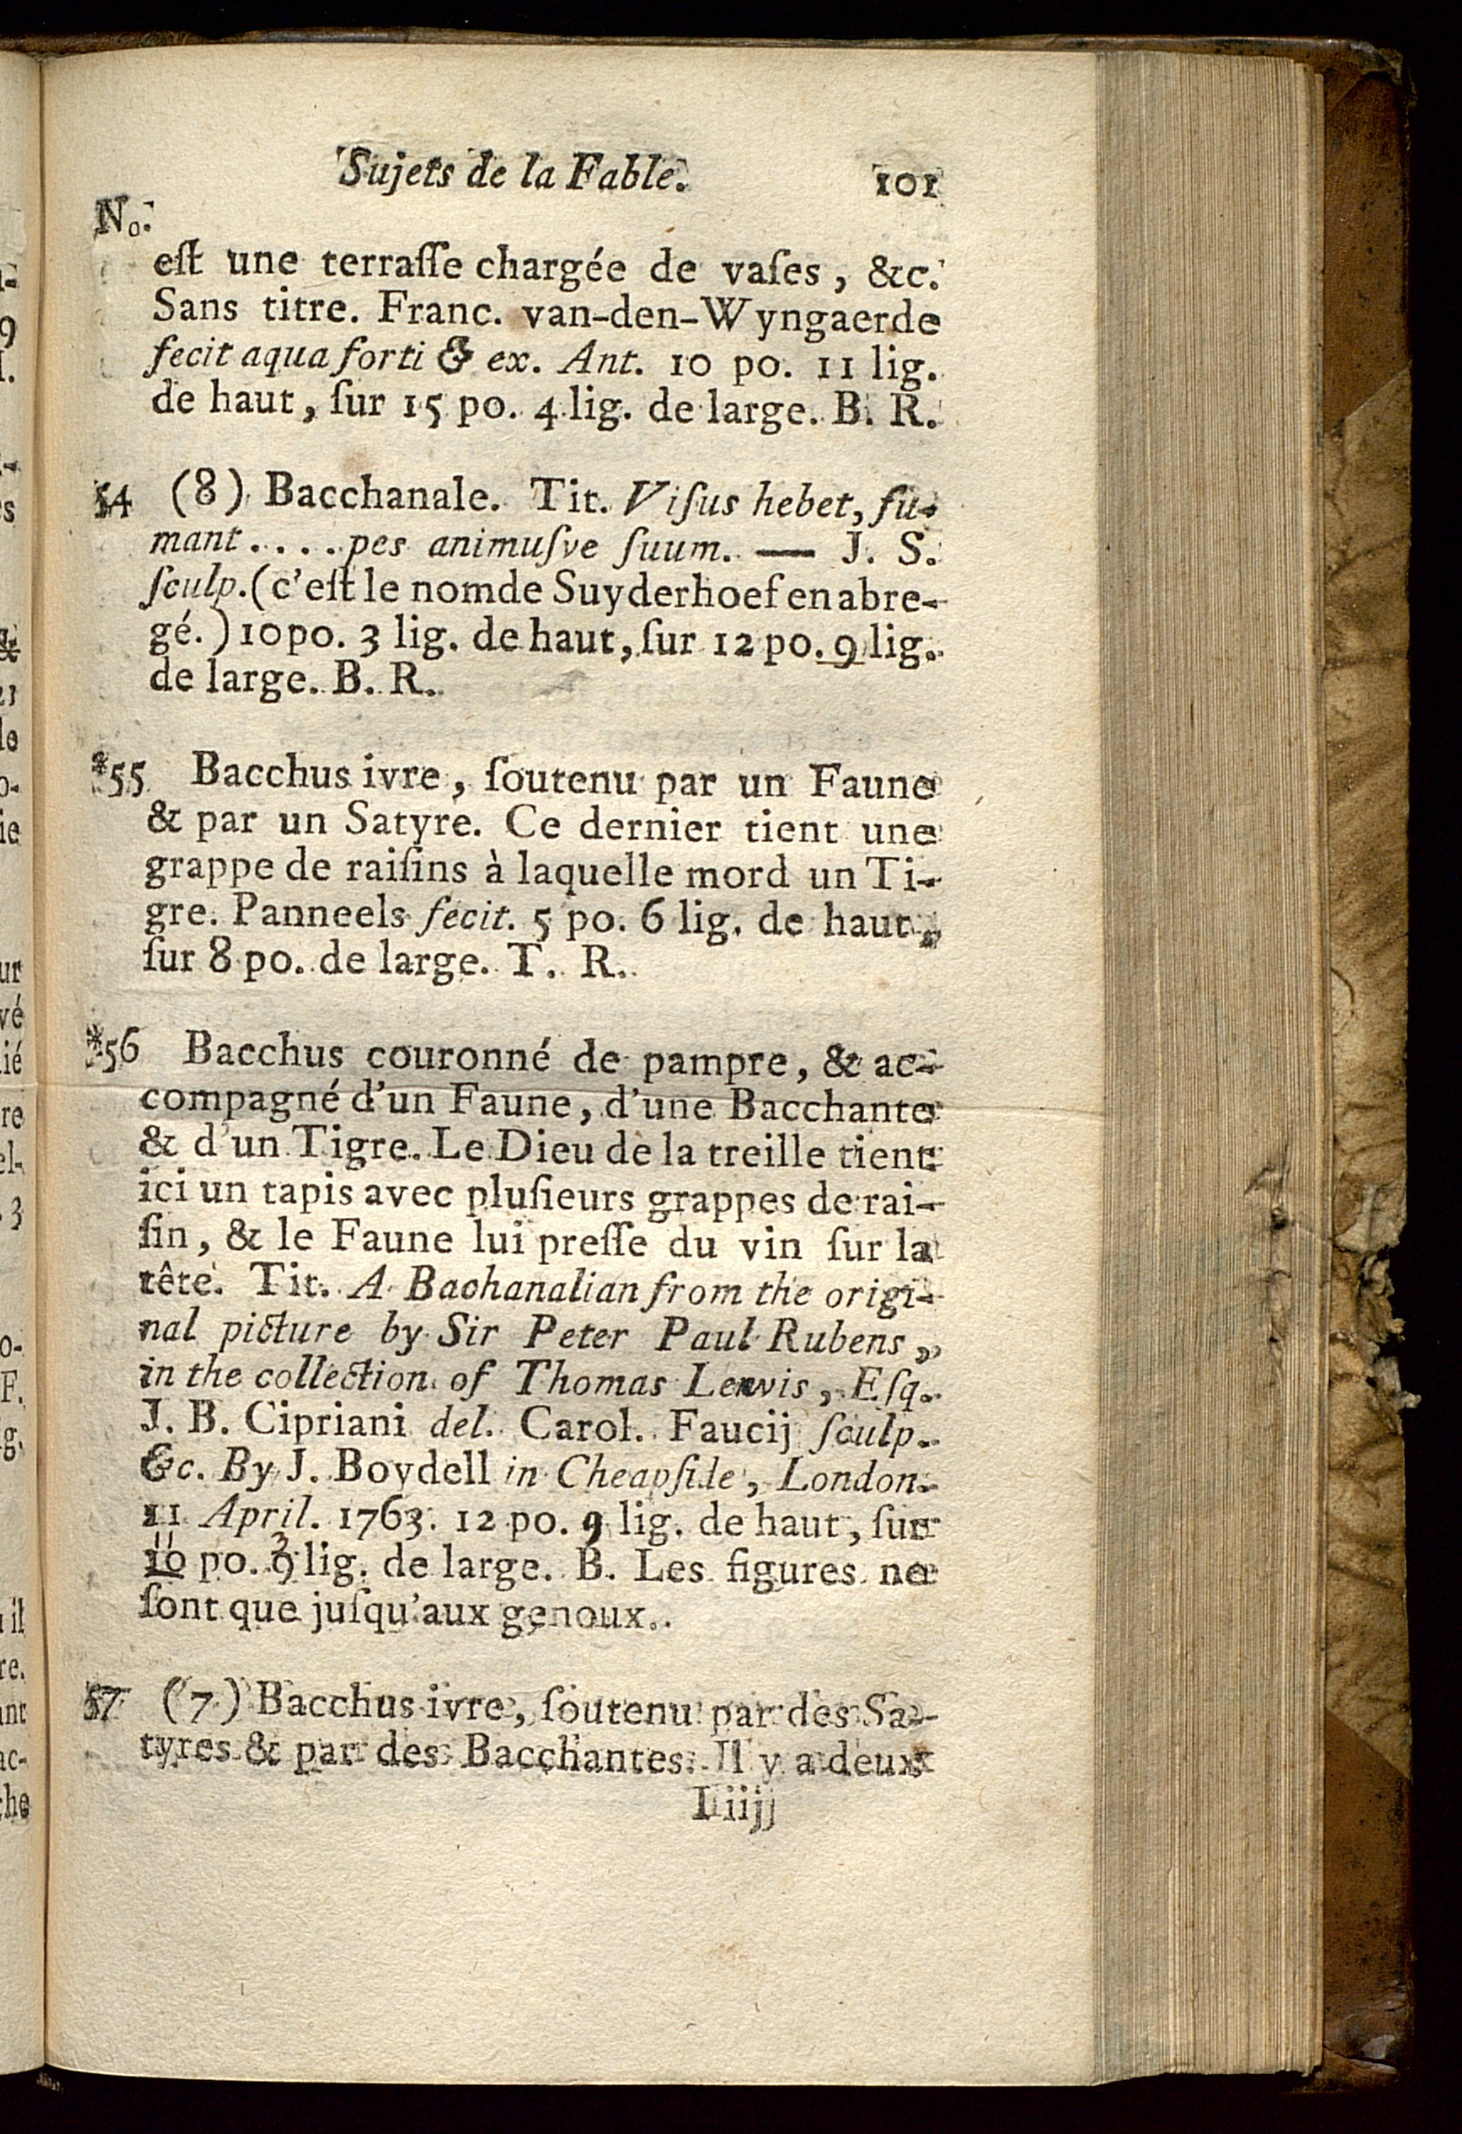 Sujets de la Fable. 101
No.
eſt une terraſſe chargée de vaſes, &c.
Sans titre. Franc. van-den-Wyngaerde
fecit aqua forti & ex. Ant. 10 po. 11 lig.
de haut, ſur 15 po. 4 lig. de large. B. R.
54 (8) Bacchanale. Tit. Viſus hebet, fu-
mant....pes animuſve ſuum. — J. S.
ſculp. (c'eſt le nom de Suyderhoef en abre-
gé.) 10 po. 3 lig. de haut, ſur 12 po. 9 lig.
de large. B. R.
*55 Bacchus ivre, ſoutenu par un Faune
& par un Satyre. Ce dernier tient une
grappe de raiſins à laquelle mord un Ti-
gre. Panneels fecit. 5 po. 6 lig. de haut,
ſur 8 po. de large. T. R.
*56 Bacchus couronné de pampre, & ac-
compagné d'un Faune, d'une Bacchante
& d'un Tigre. Le Dieu de la treille tient
ici un tapis avec pluſieurs grappes de rai-
ſin, & le Faune lui preſſe du vin ſur la
tête. Tit. A Bachanalian from the origi-
nal picture by Sir Peter Paul Rubens,
in the collection of Thomas Lewis, Eſq.
J. B. Cipriani del. Carol. Faucij ſculp.
&c. By J. Boydell in Cheapſide, London.
11 April. 1763. 12 po. 9 lig. de haut, ſur
11 3
10 po. 9 lig. de large. B. Les figures ne
ſont que juſqu'aux genoux.
57 (7) Bacchus ivre, ſoutenu par des Sa-
tyres & par des Bacchantes. Il y a deux
I iiij